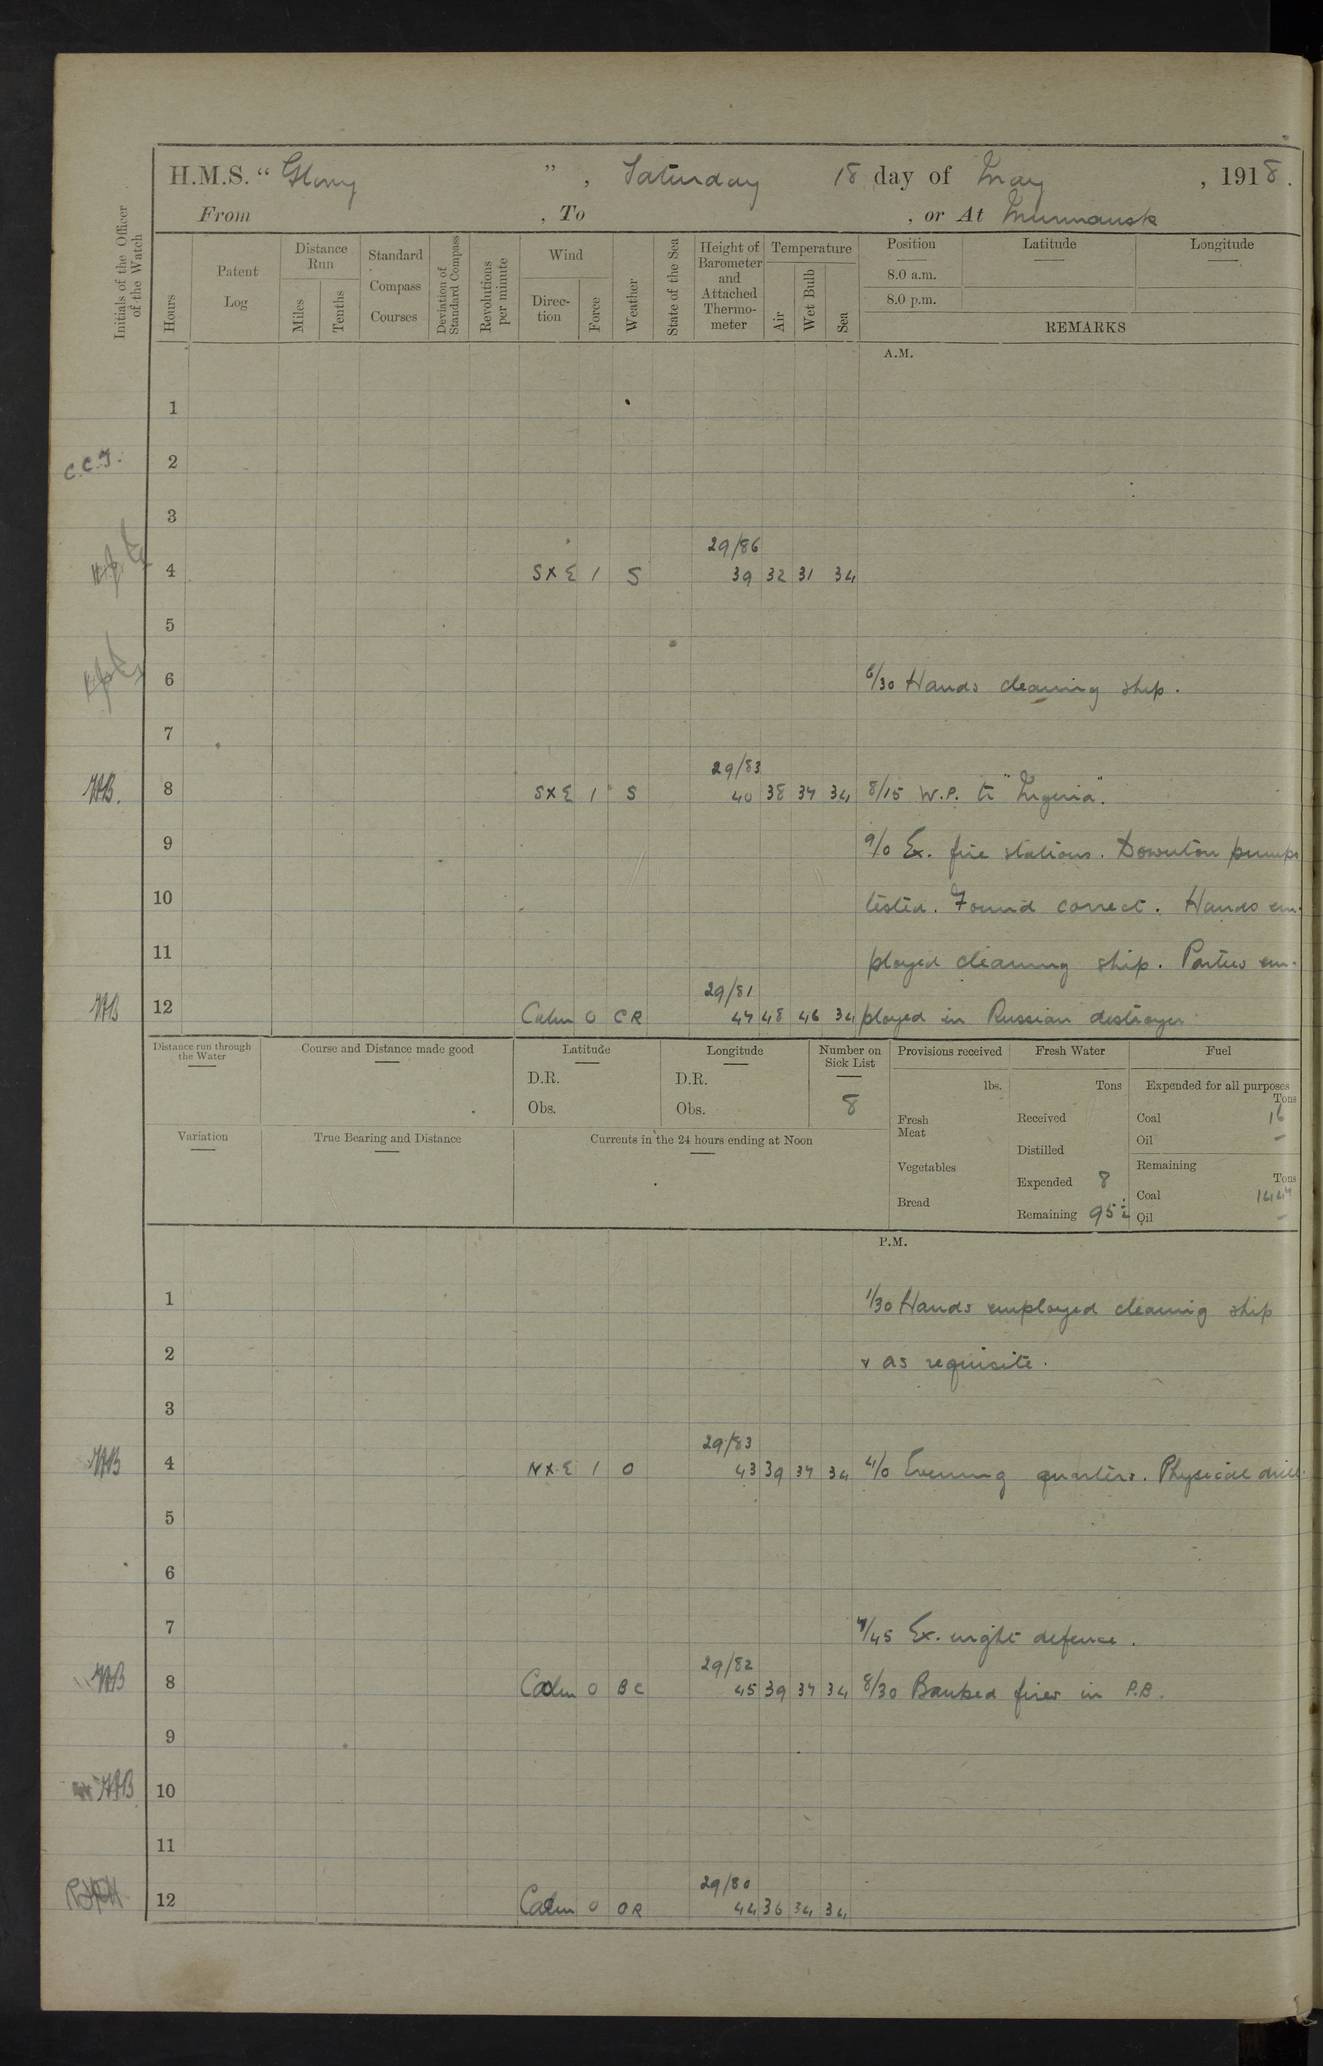 H.M.S. “ Glory ” , Saturday 18 day of May , 1918.
From , To , or At Murmansk
Initials of the Officer of the Watch
Hours
Patent Log
Distance Run
Miles
Tenths
Standard Compass Courses
Deviation of Standard Compass
Revolutions per minute
Wind
Direc-tion
Force
Weather
State of the Sea
Height of Barometer and Attached Thermo-meter
Temperature
Air
Wet Bulb
Sea
Position Latitude Longitude
8.0 a.m.
8.0 p.m.
REMARKS
A.M.
1
C.C.J. 2
3
29/86
4 S X E 1 S 39 32 31 34
5
6 6/30 Hands cleaning ship.
7
29/83
HB. 8 S X E 1 S 40 38 37 34 8/15 W.P. to "Nigeria".
9 9/0 Ex. fire stations. Downton pumps
10 tested. Found correct. Hands em-
11 ployed cleaning ship. Parties em-
29/81
HB 12 Calm 0 CR 47 48 46 34 ployed in Russian destroyer
Distance run through the Water
Course and Distance made good
Latitude
D.R.
Obs.
Longitude
D.R.
Obs.
Number on Sick List
8
Variation
True Bearing and Distance
Currents in the 24 hours ending at Noon
Provisions received
lbs.
Fresh Meat
Vegetables
Bread
Fresh Water
Tons
Received
Distilled
Expended 8
Remaining 95½
Fuel
Expended for all purposes
Tons
Coal 16
Oil –
Remaining
Tons
Coal 1447
Oil –
P.M.
1 1/30 Hands employed cleaning ship
2 & as requisite.
3
29/83
HB 4 N X E 1 O 43 39 37 34 4/0 Evening quarters. Physical drill.
5
6
7 7/45 Ex. night defence.
29/82
HB 8 Calm 0 BC 45 39 37 34 8/30 Banked fires in P.B.
9
HB 10
11
29/80
12 Calm 0 OR 44 36 34 34